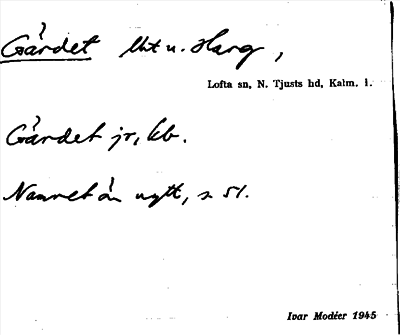 Gärdet lht u. Harg,
Lofta sn, N. Tjusts hd, Kalm. l.
Gärdet jr, kb.
Namnet är nytt, s 51.
Ivar Modéer 1945